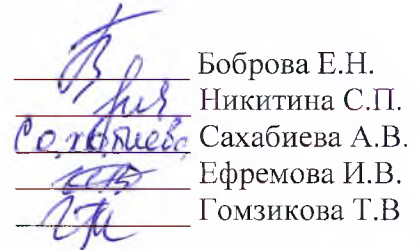 Боброва Е.Н.
Никитина С.П.
Сахабиева А.В.
Ефремова И.В.
Гомзикова Т.В